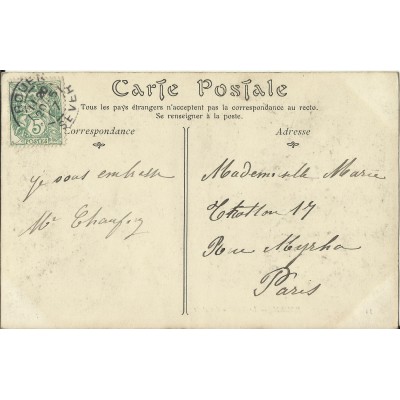 Carte Postale
Tous les pays étrangers n'acceptent pas la correspondance au recto.
Se renseigner à la poste.
Correspondance
Adresse
je vous embrasse
Mademoiselle Marie
17
Rue Myrha
Paris
ROUEN
5
POSTES